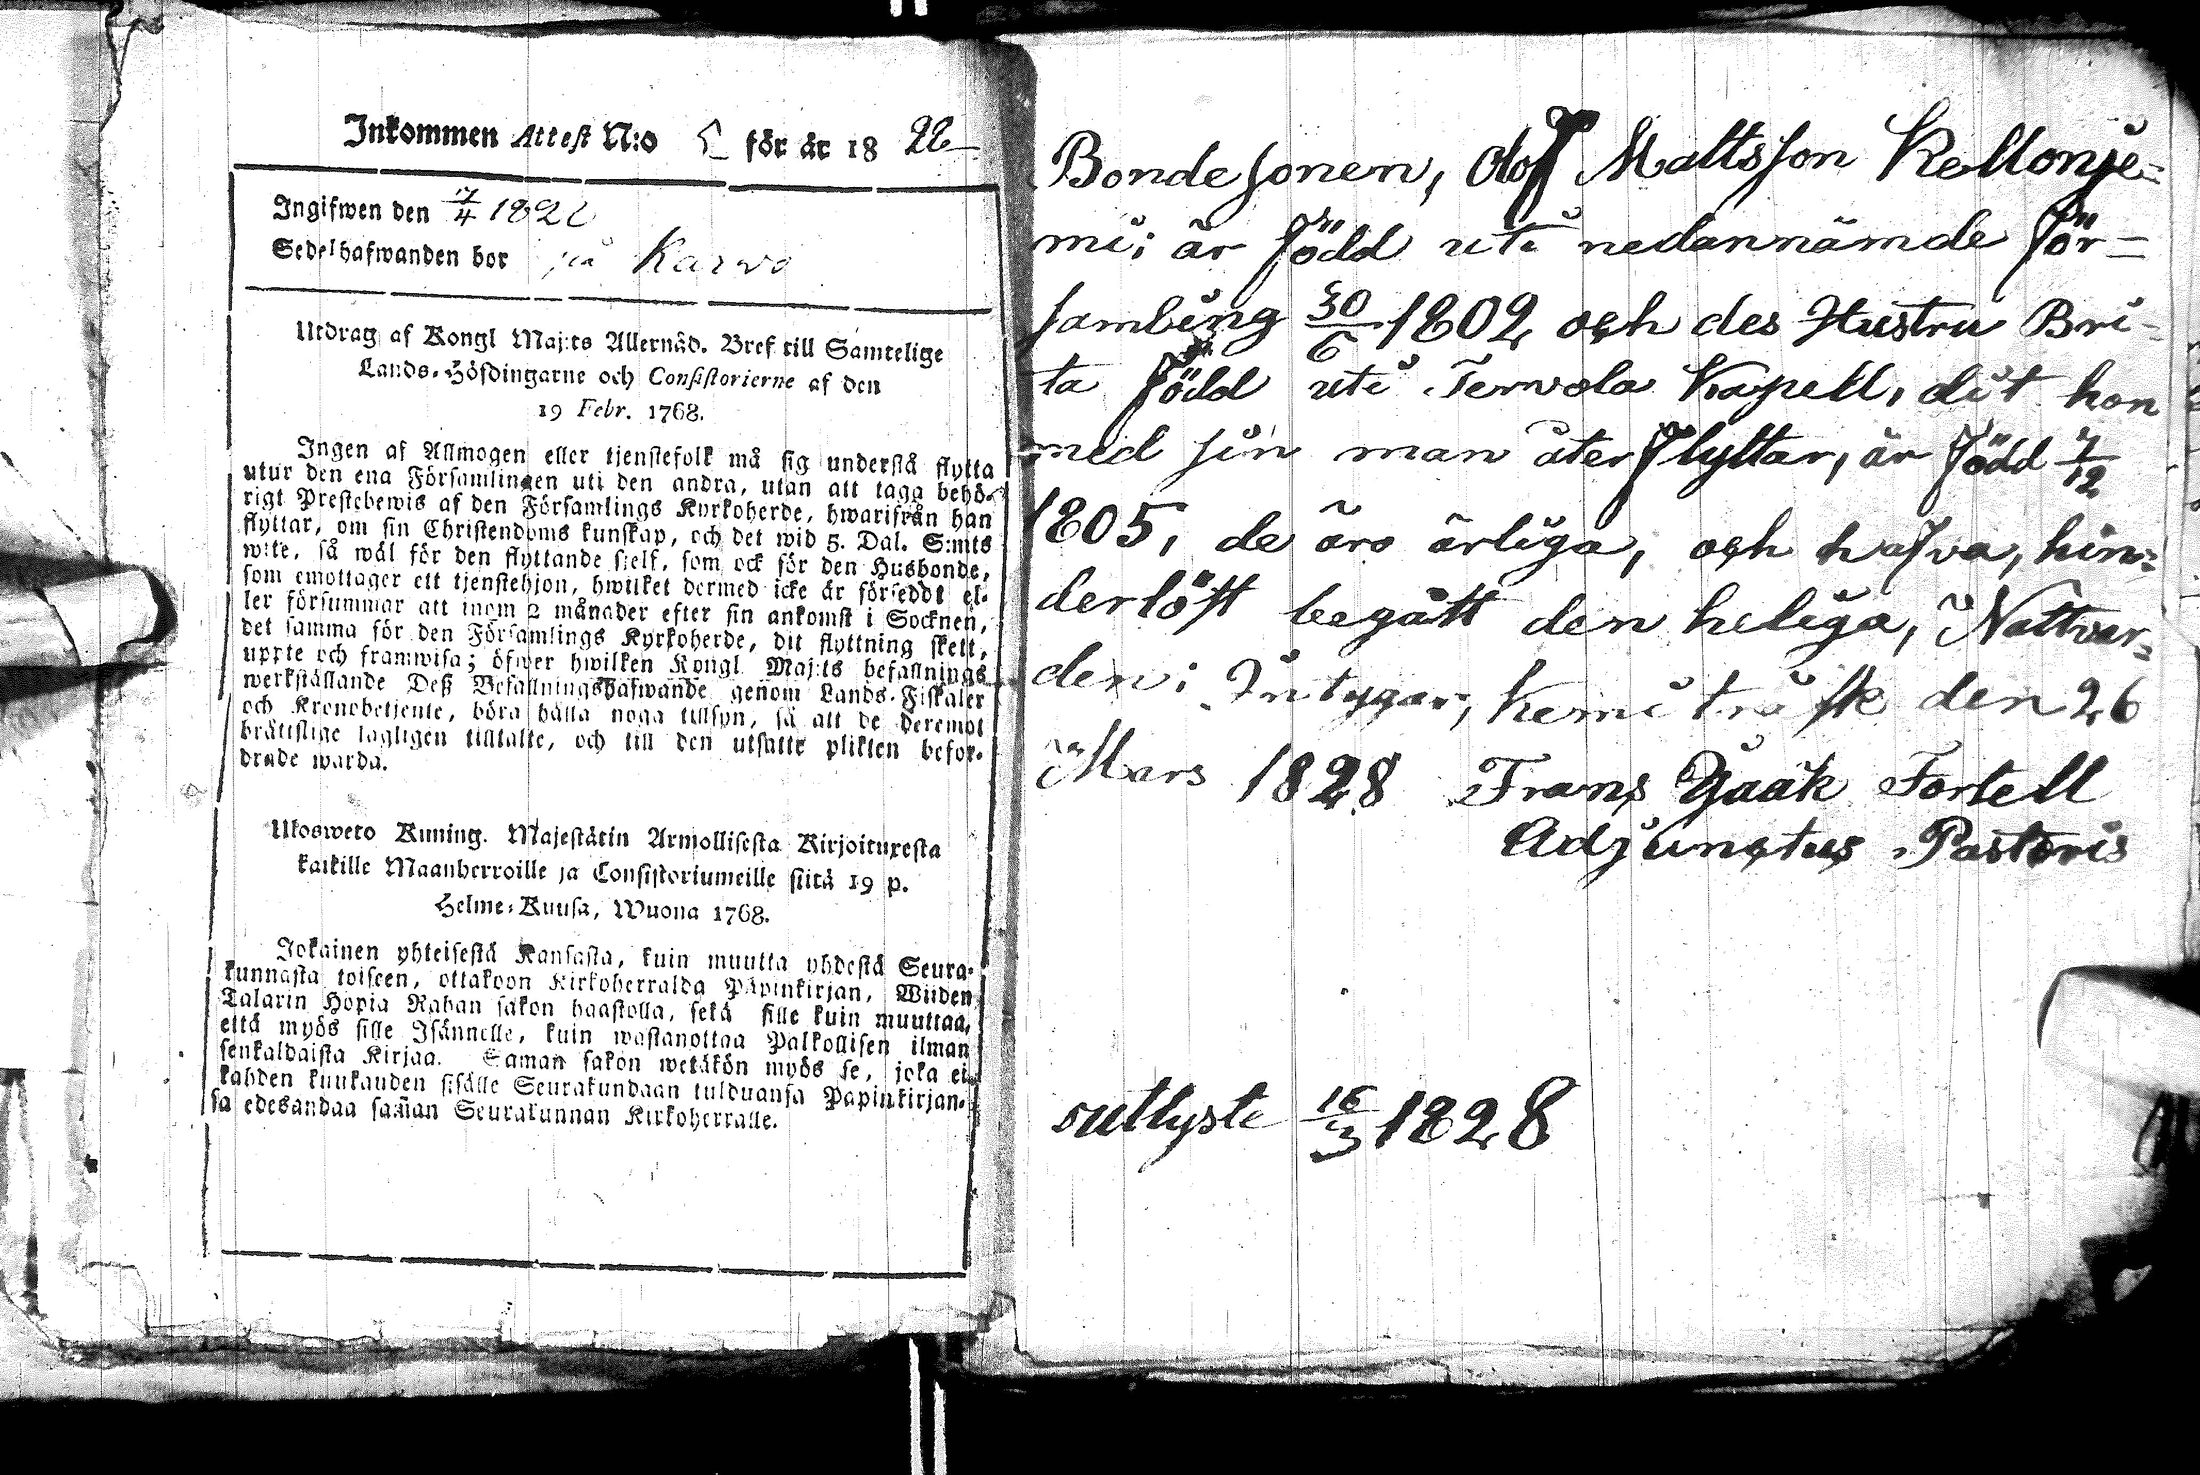 Inkommen Attest N:o 5 för år 18 22
Ingifwen den 7/4 182
Sedelhafwanden bor på Karwo
Utdrag af Kongl Maj:ts Allernåd. Bref till Samtelige
Lands-Höfdingarne och Consistorierne af den
19 Febr. 1768.
Ingen af Allmogen eller tjenstefolk må sig understå flytta
utur den ena Församlingen uti den andra, utan att taga behö-
rigt Prestebewis af den Församlings Kyrkoherde, hwarifrån han
flyttar, om sin Christendoms kunskap, och det wid 5. Dal. S:mts
wite, så wäl för den flyttande sielf, som ock för den Husbonde,
som emottager ett tjenstehjon, hwilket dermed icke är förseddt el-
ler försummar att inom 2 månader efter sin ankomst i Socknen,
det samma för den Församlings Kyrkoherde, dit flyttning skett,
uppte och framwisa; öfwer hwilken Kongl Maj:ts befallnings
werkställande Deß Befallningshafwande genom Lands-Fiskaler
och Kronobetjente, böra hålla noga tillsyn, så att de deremot
bråttslige lagligen tilltalte, och till den utsatte plikten befor-
drade warda.
Ulosweto Kuning. Majestätin Armollisesta Kirjoituxesta
kaikille Maanherroille ja Consistoriumeille siitä 19 p.
Helme-Kuusa, Wuona 1768.
Jokainen yhteisestä Kansasta, kuin muutta yhdestä Seura-
kunnasta toiseen, ottakoon Kirkoherralda Papinkirjan, Wiiden
Talarin Hopia Rahan sakon haastolla, sekä sille kuin muuttaa,
että myös sille Isännelle, kuin wastanottaa Palkollisen ilman
senkaldaista Kirjaa. Saman sakon wetäkön myös se, joka ei
kahden kuukauden sisälle Seurakundaan tulduansa Papinkirjan-
sa edesandaa saman Seurakunnan Kirkoherralle.
Bondesonen, Olof Mattsson Kellonie=
mi; är född uti nedannämde för=
samling 30/6 1802 och des Hustru Bri-
ta född uti Tervola Kapell, dit hon
med sin man återflyttar, är född 7/12
1805, de äro ärliga, och hafva, hin=
derlöst begått den heliga, Nattvar=
den; Intygar, Kemi träsk den 26
Mars 1828 Frans Isaak Fortell
Adjunctus Pastoris
uttlyste 16/3 1828